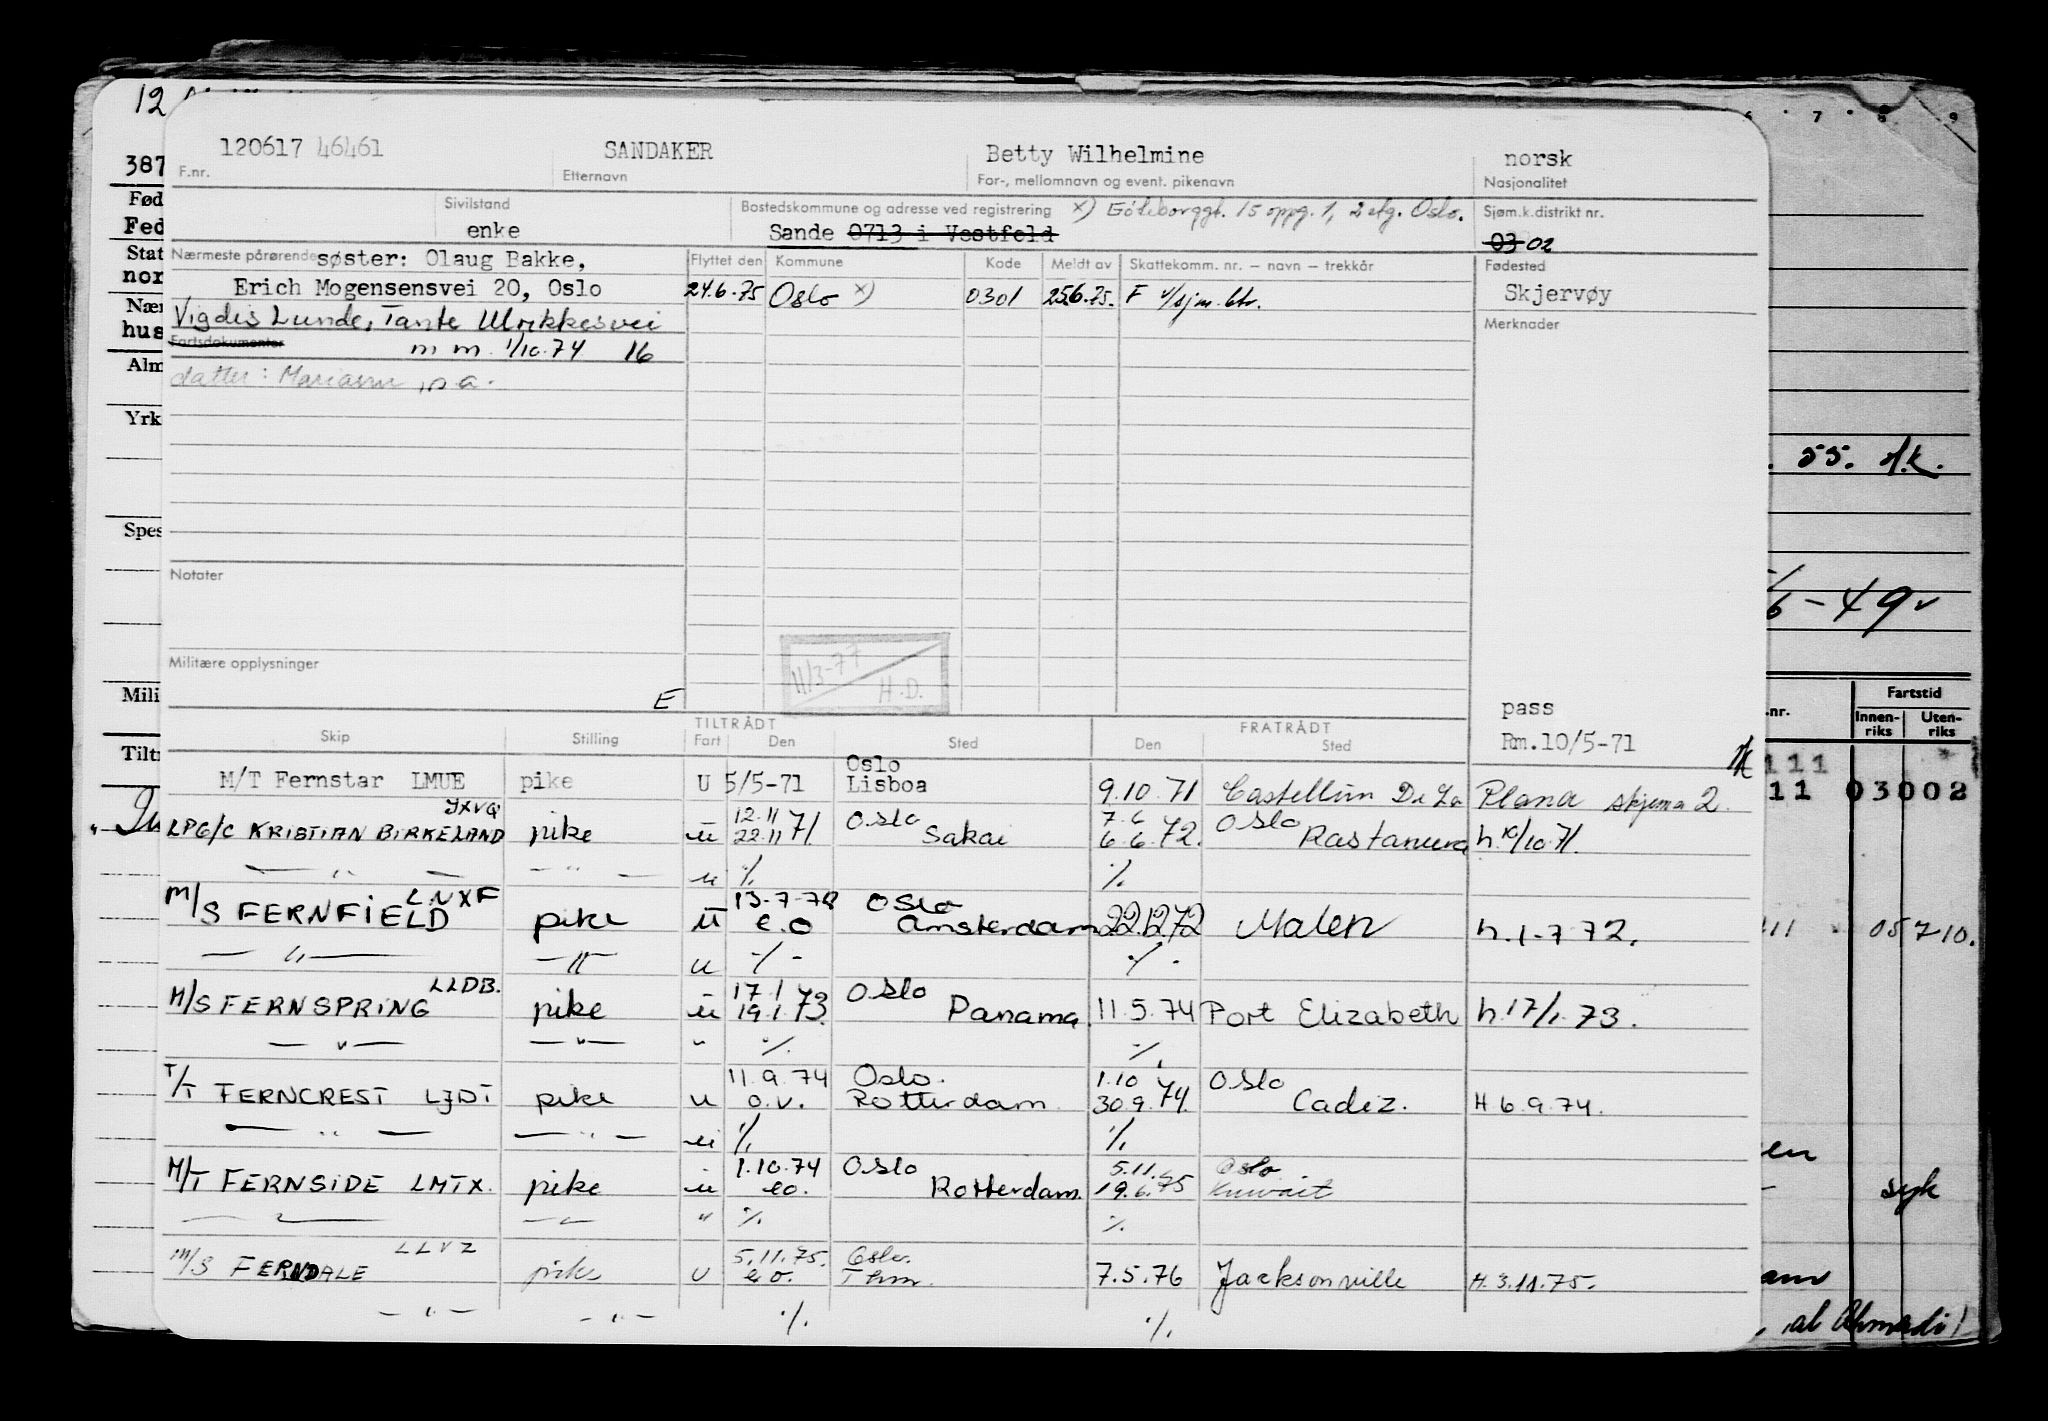 12
7 8 9
387
120617 46461 SANDAKER Betty Wilhelmine norsk
F.nr. Etternavn For-, mellomnavn og event. pikenavn Nasjonalitet
Fød
Sivilstand Bostedskommune og adresse ved registrering x) Góteborggt. 15 oppg. 1, 2 etg. Oslo. Sjøm.k.distrikt nr.
Fed
enke Sande 0713 i Vestfold 03 02
Stat
Nærmeste pårørende søster: Olaug Bakke, Flyttet den Kommune Kode Meldt av Skattekomm. nr. – navn – trekkår Fødested
nor
Erich Mogensensvei 20, Oslo 24.6.75 Oslo x) 0301 25.6.75. F Skjervøy
Nær
hus
Vigdis Lunde, Tante Ulrikkesvei Merknader
Fartsdokumenter m m. 1/10.74 16
Alm
datter: Mariann
Yrk
. 55.
Spes
Notater
6 – 49
Militære opplysninger 11/3-77 H.D.
Mili
E
pass
TILTRÅDT FRATRÅDT
Skip Stilling Fart Den Sted Den Sted Rm.10/5-71
.nr. Fartstid
Innen-riks Uten-riks
Tiltr
M/T Fernstar LMUE pike U 5/5-71 Oslo Lisboa 9.10.71 Castellon De La Plana skjema 2.
111
11 03002
JXVQ
LPG/C KRISTIAN BIRKELAND pike u 12.11 22.11 71. Oslo Sakai 7.6 6.6.72. Oslo Rastanura h.10/10.71.
— " — — " — u ٪ ٪
M/S FERNFIELD LNXF pike u 13-7-72 e.o Oslo Amsterdam 22.12.72 Malen h.1-7 72.
11 05710.
— " — — " — u ٪ ٪
M/S FERNSPRING LLDB. pike u 17.1 19.1.73. Oslo Panama. 11.5.74 Port Elizabeth h.17/1.73.
— " — — " — " ٪ ٪
T/T FERNCREST LJDT pike u 11.9.74 o.v. Oslo. Rotterdam 1.10 30.9.74. Oslo Cadiz. H 6.9.74.
— " — — " — u ٪ ٪
en
M/T FERNSIDE LMTX. pike u 1.10.74 eo. Oslo Rotterdam. 5.11. 19.6.75 Oslo Kuwait
syk
— " — — " — " ٪ ٪
M/S FERNDALE LLVZ pike U 5.11.75. e.o. Oslo. 7.5.76 Jacksonville H.3.11.75.
— " — — " — ٪ ٪
al Ahmadi)